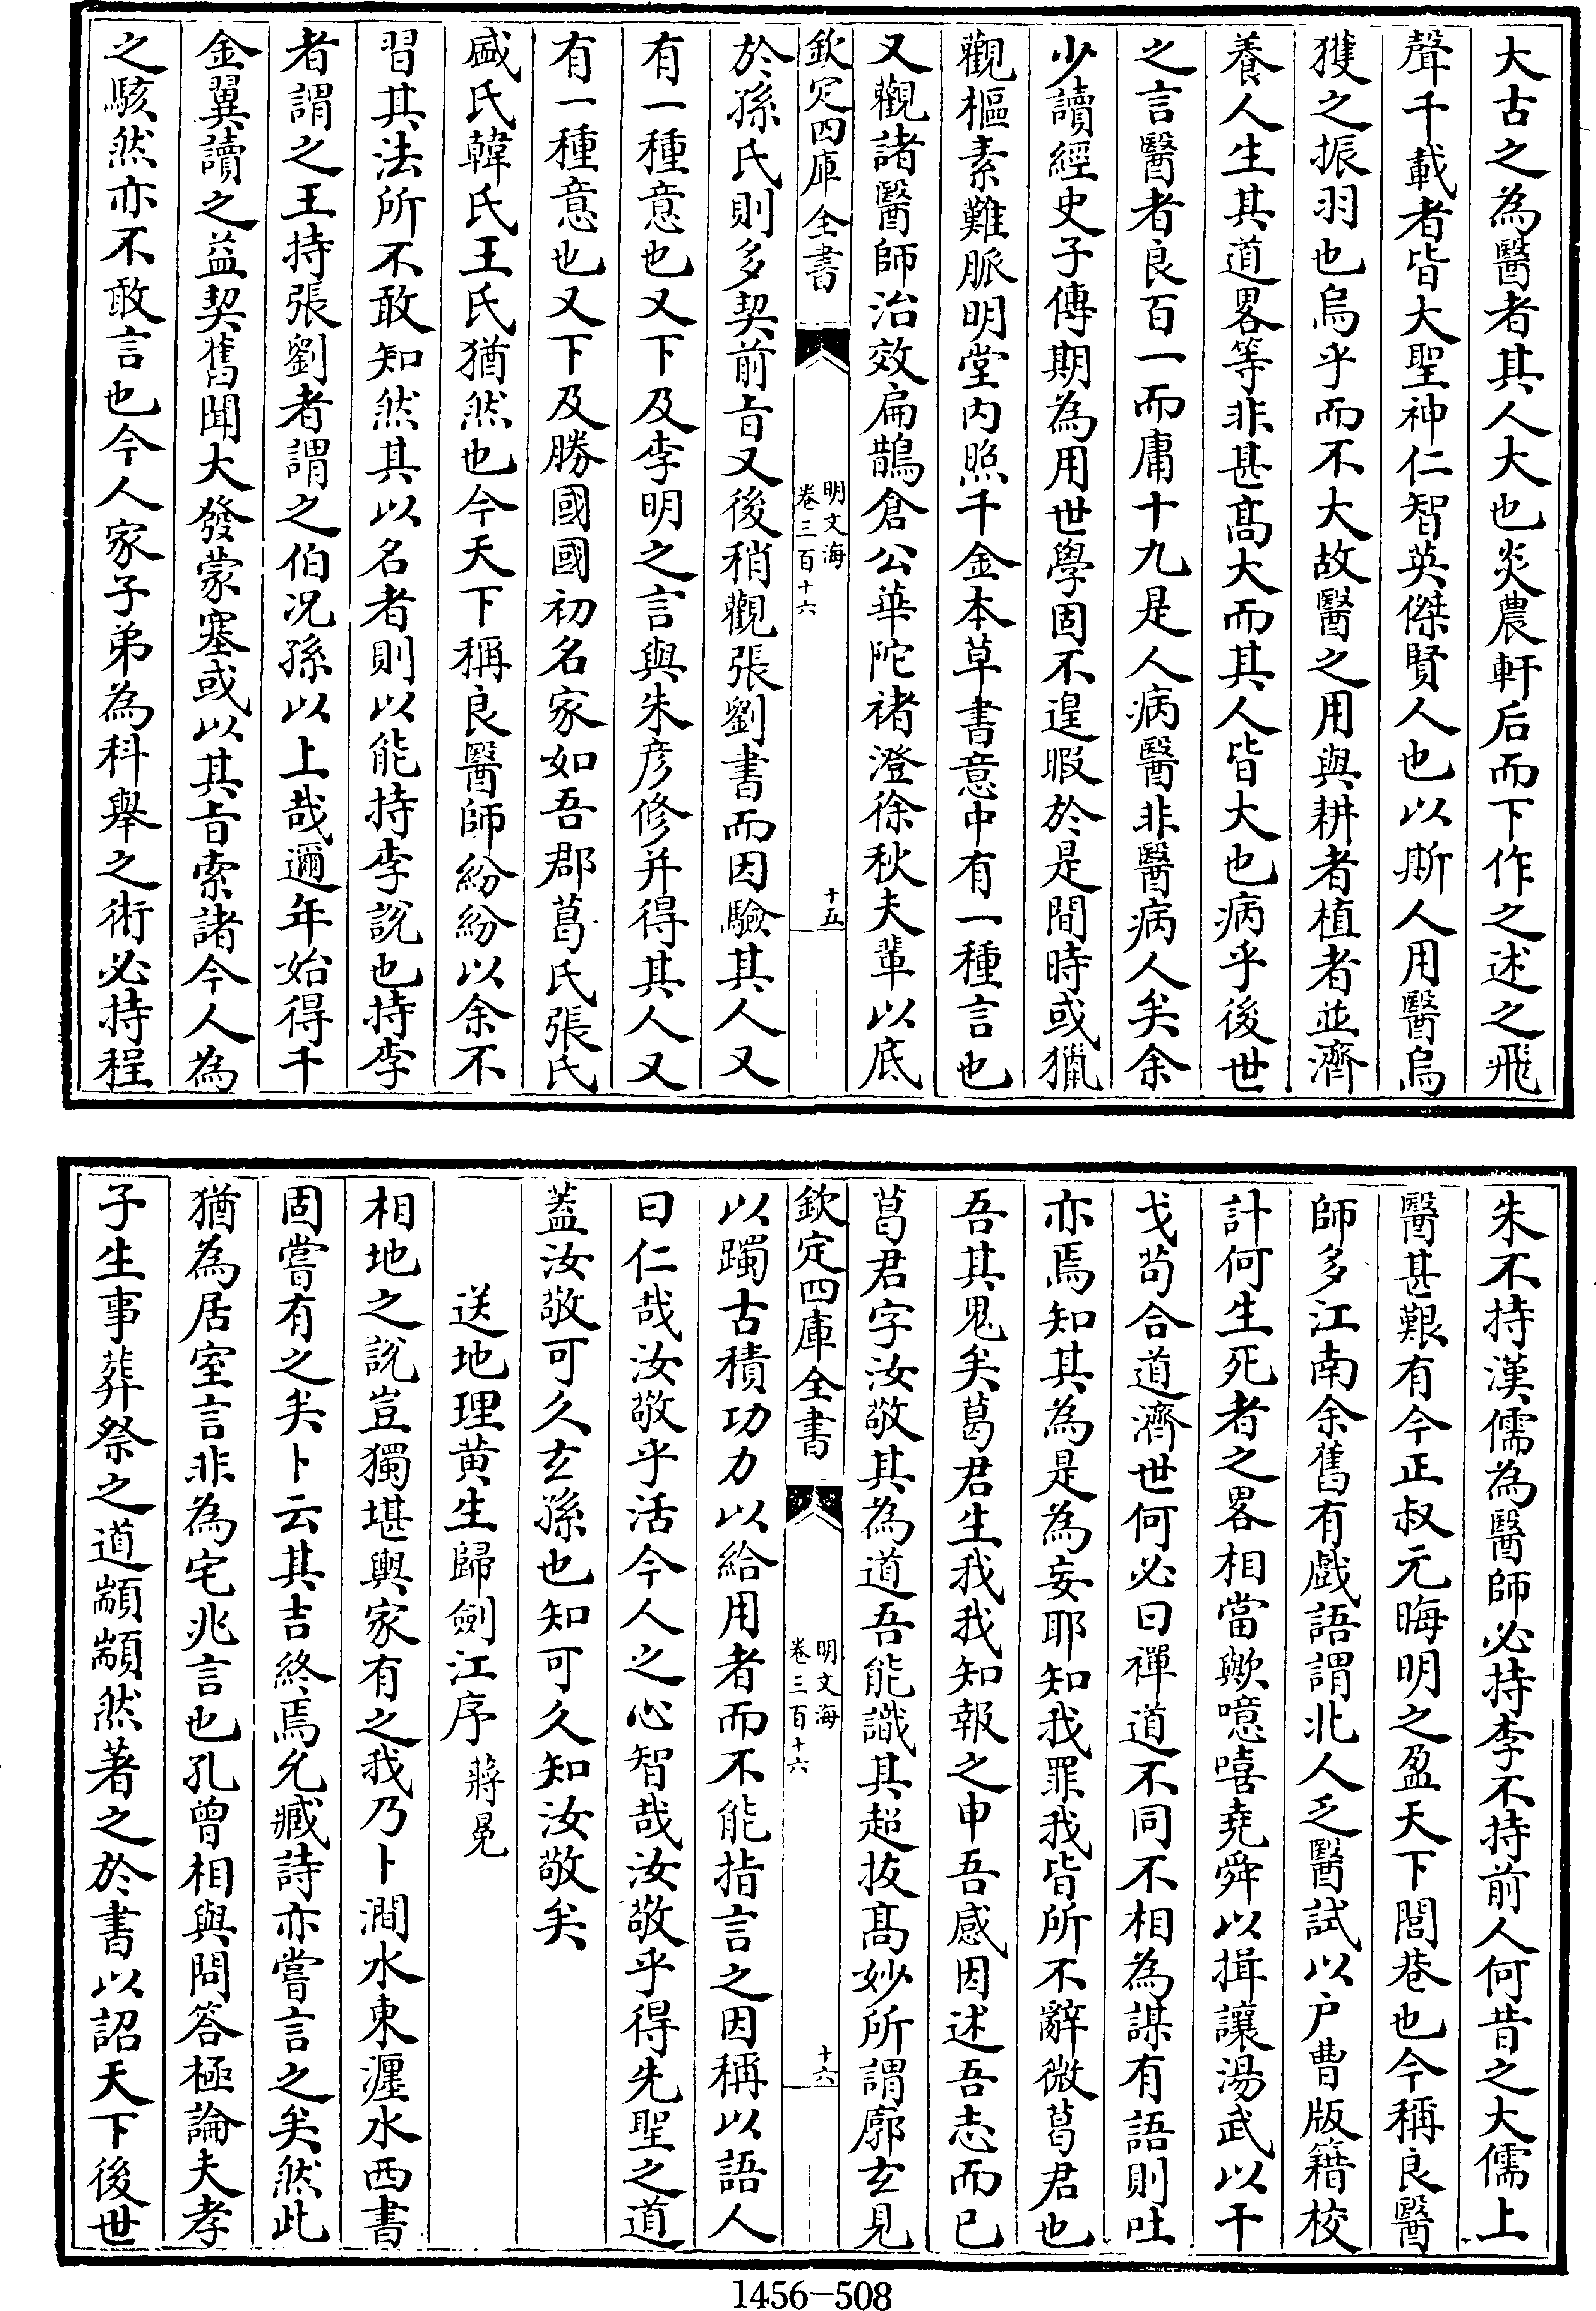 大古之為醫者其人大也炎農軒后而下作之述之飛
聲千載者皆大聖神仁智英傑賢人也以斯人用醫烏
獲之振羽也烏乎而不大故醫之用與耕者植者並濟
養人生其道畧等非甚髙大而其人皆大也病乎後世
之言醫者良百一而庸十九是人病醫非醫病人矣余
少讀經史子傳期為用世學固不遑暇於是間時或獵
觀樞素難脈明堂内照千金本草書意中有一種言也
又觀諸醫師治效扁鵲倉公華陀褚澄徐秋夫輩以底
欽定四庫全書
明文海
卷三百十六
十五
於孫氏則多契前㫖又後稍觀張劉書而因驗其人又
有一種意也又下及李明之言與朱彦修并得其人又
有一種意也又下及勝國國初名家如吾郡葛氏張氏
盛氏韓氏王氏猶然也今天下稱良醫師紛紛以余不
習其法所不敢知然其以名者則以能持李說也持李
者謂之王持張劉者謂之伯况孫以上哉邇年始得千
金翼讀之益契舊聞大發蒙塞或以其㫖索諸今人為
之駭然亦不敢言也今人家子弟為科舉之術必持程
朱不持漢儒為醫師必持李不持前人何昔之大儒上
醫甚艱有今正叔元晦明之盈天下閭巷也今稱良醫
師多江南余舊有戲語謂北人乏醫試以户曹版籍校
計何生死者之畧相當歟噫嘻堯舜以揖讓湯武以干
戈苟合道濟世何必曰禪道不同不相為謀有語則吐
亦焉知其為是為妄耶知我罪我皆所不辭微葛君也
吾其鬼矣葛君生我我知報之申吾感因述吾志而已
葛君字汝敬其為道吾能識其超拔髙妙所謂廓玄見
欽定四庫全書
明文海
卷三百十六
十六
以躅古積功力以給用者而不能指言之因稱以語人
曰仁哉汝敬乎活今人之心智哉汝敬乎得先聖之道
蓋汝敬可久玄孫也知可久知汝敬矣
送地理黄生歸劍江序 蔣冕
相地之說豈獨堪輿家有之我乃卜澗水東瀍水西書
固嘗有之矣卜云其吉終焉允臧詩亦嘗言之矣然此
猶為居室言非為宅兆言也孔曾相與問答極論夫孝
子生事葬祭之道顓顓然著之於書以詔天下後世
1456-508